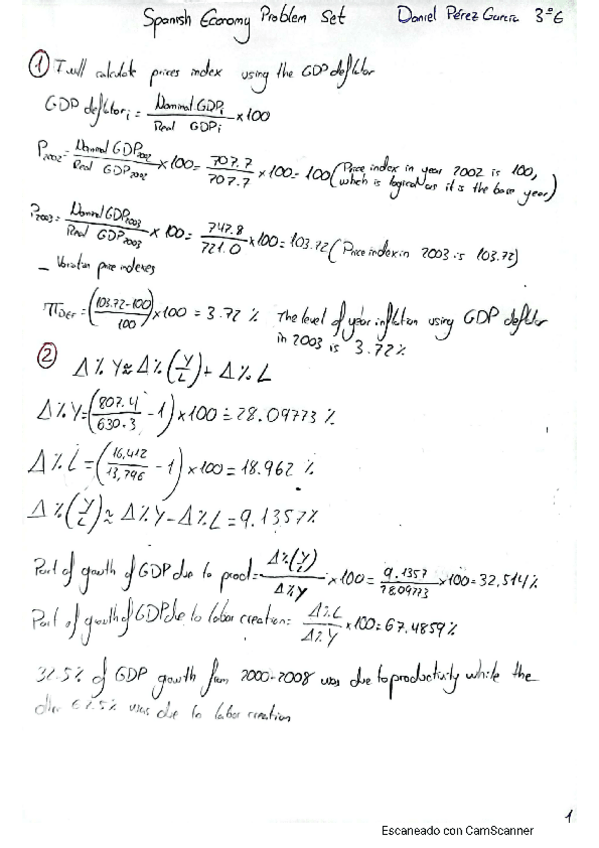 Spanish Economy Problem Set Daniel Pérez García 3º6
① I will calculate prices index using the GDP deflator
GDP deflator i = Nominal GDP i / Real GDP i × 100
P2002 = Nominal GDP2002 / Real GDP2002 × 100 = 707.7 / 707.7 × 100 = 100 (Price index in year 2002 is 100,
which is logical as it is the base year)
P2003 = Nominal GDP2003 / Real GDP2003 × 100 = 747.8 / 721.0 × 100 = 103.72 (Price index in 2003 is 103.72)
– Variation price indexes
πDEF = (103.72-100 / 100) × 100 = 3.72 % The level of year inflation using GDP deflator
in 2003 is 3.72%
② Δ% Y ≈ Δ% (Y/L) + Δ% L
Δ% Y = (807.4 / 630.3 - 1) × 100 = 28.09773 %
Δ% L = (16,412 / 13,796 - 1) × 100 = 18.962 %
Δ% (Y/L) ≈ Δ%Y - Δ%L = 9.1357%
Part of growth of GDP due to prod = Δ%(Y/L) / Δ%Y × 100 = 9.1357 / 28.09773 × 100 = 32,514%
Part of growth of GDP due to labor creation: Δ%L / Δ%Y × 100 = 67.4859%
32.5% of GDP growth from 2000-2008 was due to productivity while the
other 67.5% was due to labor creation
1
Escaneado con CamScanner